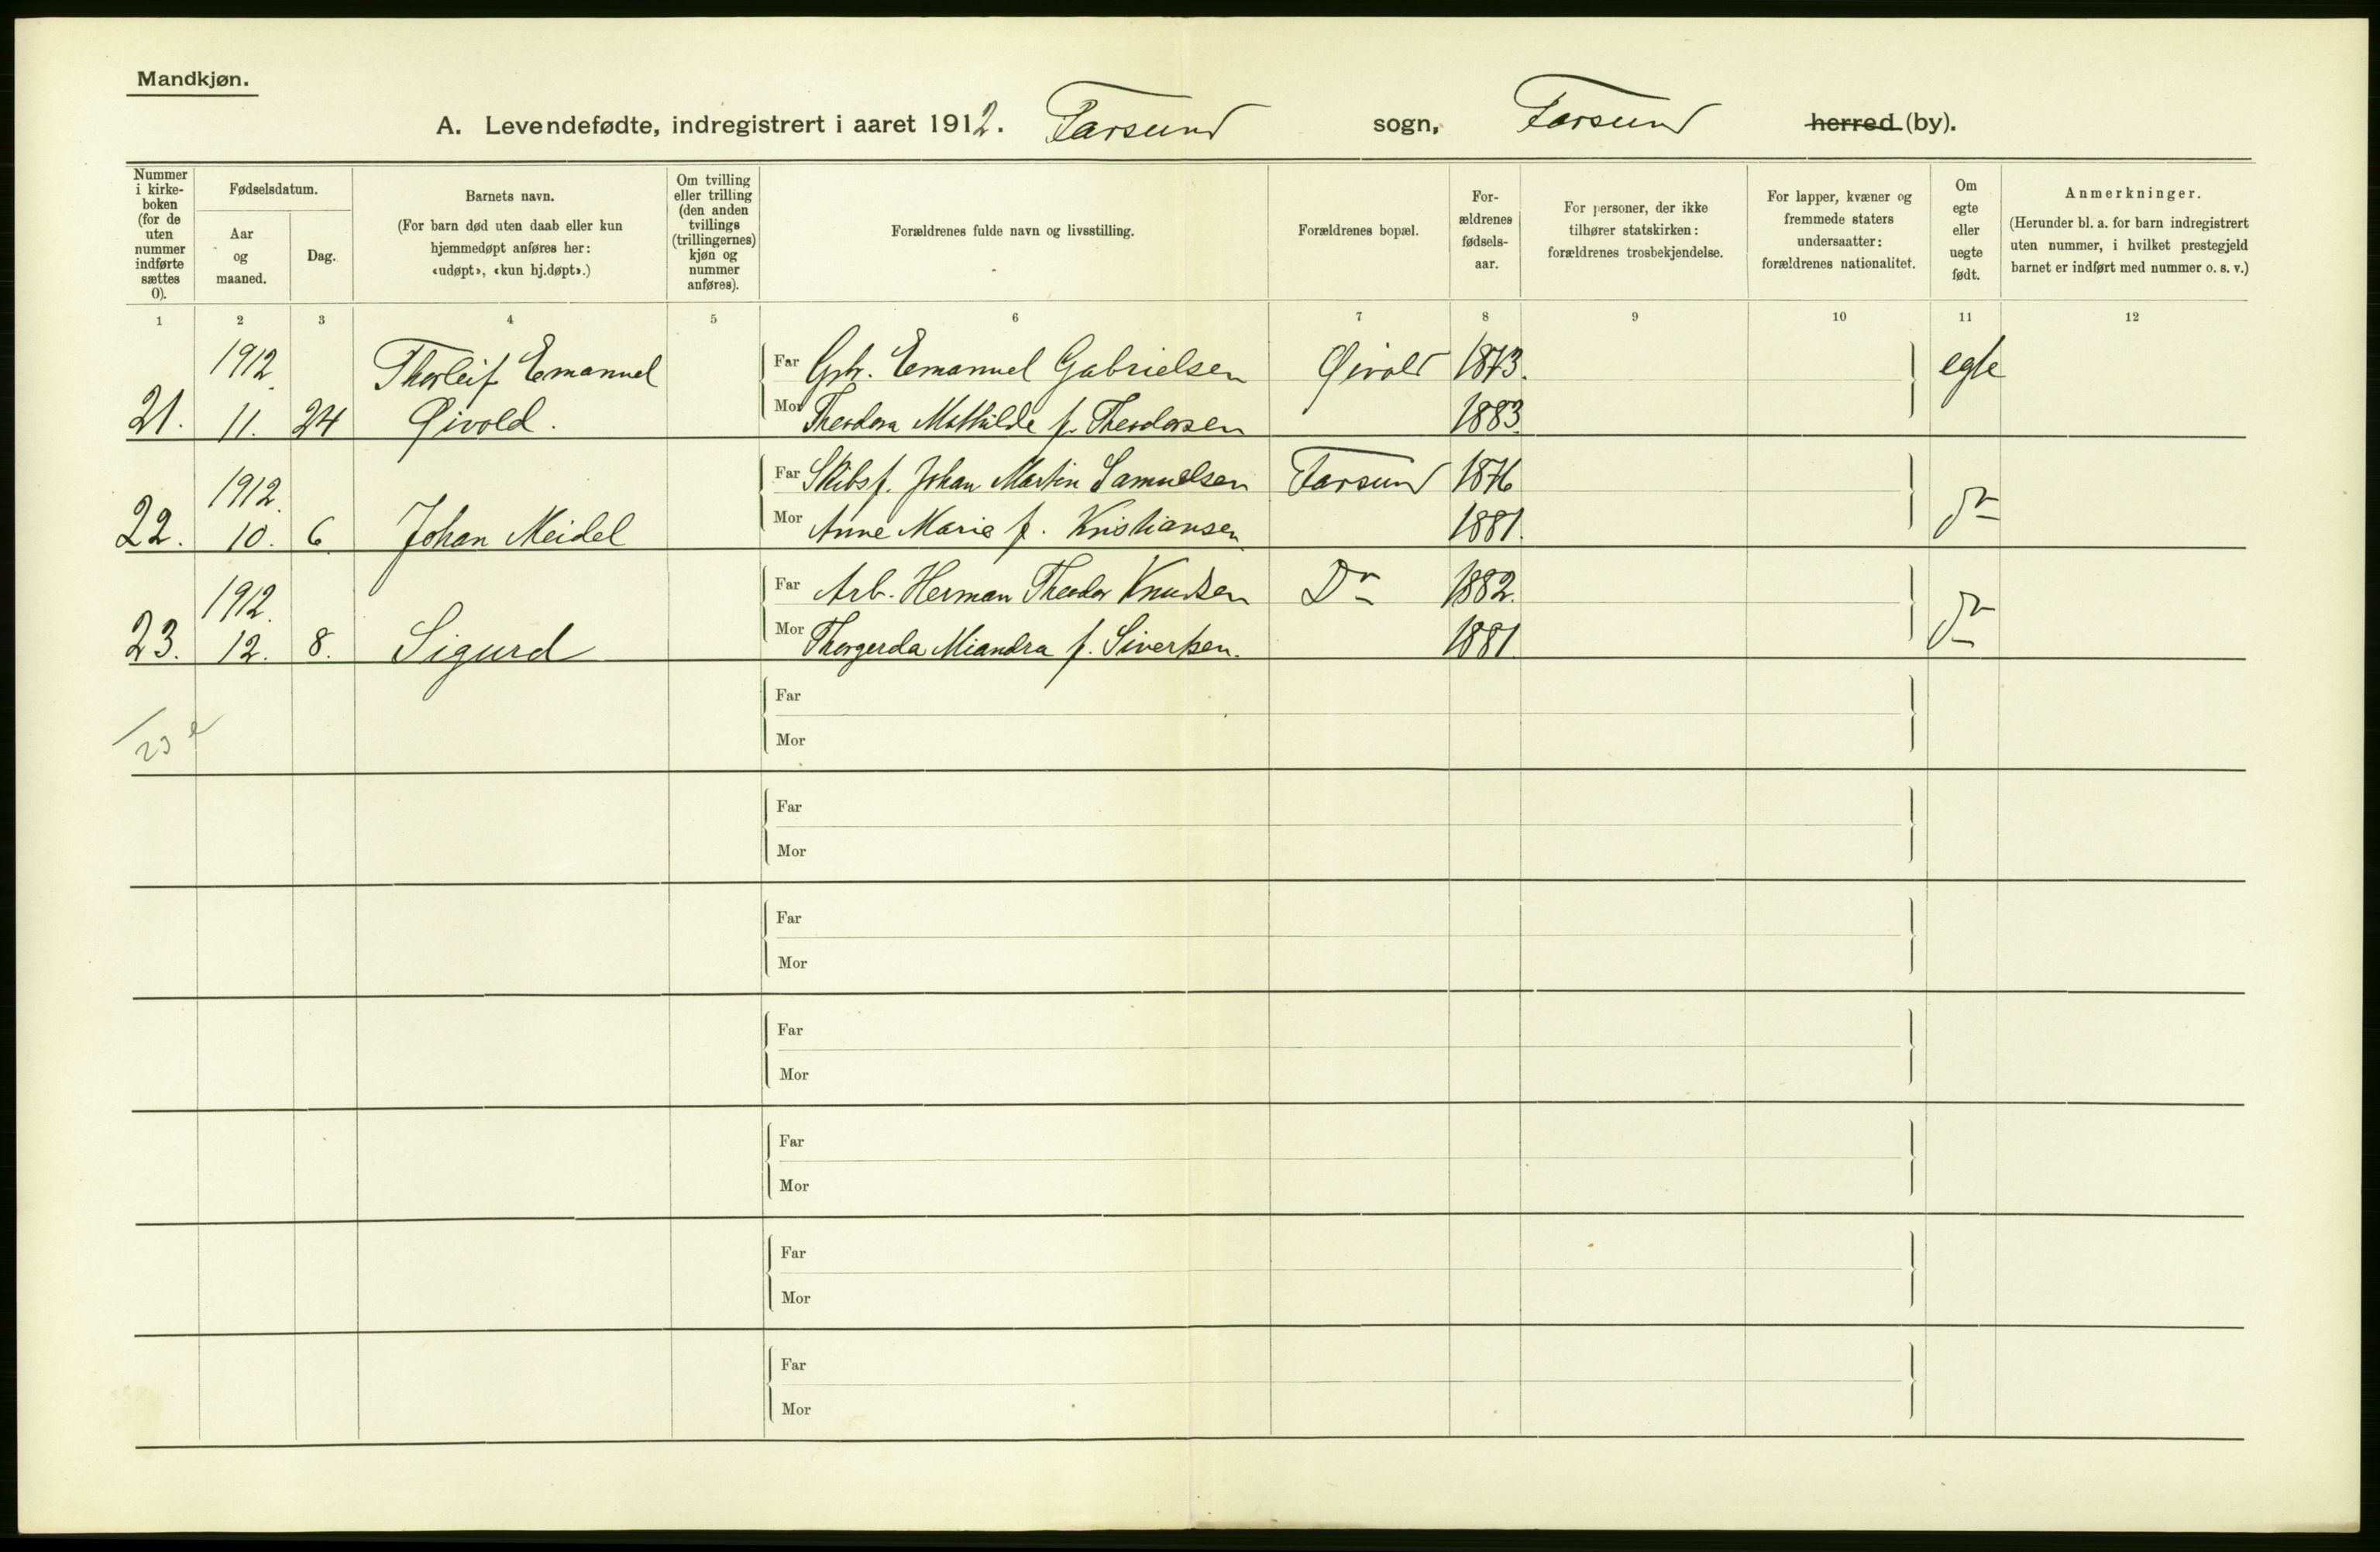 Mandkjøn.
A. Levendefødte, indregistrert i aaret 1912. Farsund sogn, Farsund herred (by).
Nummer i kirke-boken (for de uten nummer indførte sættes 0).
Fødselsdatum.
Aar og maaned.
Dag.
Barnets navn.
(For barn død uten daab eller kun hjemmedøpt anføres her: «udøpt», «kun hj.døpt».)
Om tvilling eller trilling (den anden tvillings (trillingernes) kjøn og nummer anføres).
Forældrenes fulde navn og livsstilling.
Forældrenes bopæl.
For-ældrenes fødsels-aar.
For personer, der ikke tilhører statskirken: forældrenes trosbekjendelse.
For lapper, kvæner og fremmede staters undersaatter: forældrenes nationalitet.
Om egte eller uegte født.
Anmerkninger.
(Herunder bl. a. for barn indregistrert uten nummer, i hvilket prestegjeld barnet er indført med nummer o. s. v.)
1 2 3 4 5 6 7 8 9 10 11 12
1912 Thorleif Emanuel Far Gbr. Emanuel Gabrielsen Øivold 1873. egte
21. 11. 24 Øivold. Mor Theodora Mathilde f. Theodorsen 1883.
1912 Far Skibsf. Johan Martin Samuelsen Farsund 1876
22. 10. 6 Johan Meidel Mor Anne Marie f. Kristiansen 1881. do
1912. Far Arb. Herman Theodor Knudsen Do 1882.
23. 12. 8. Sigurd Mor Thorgerda Miandra f. Sivertsen. 1881 do
Far
23
Mor
Far
Mor
Far
Mor
Far
Mor
Far
Mor
Far
Mor
Far
Mor